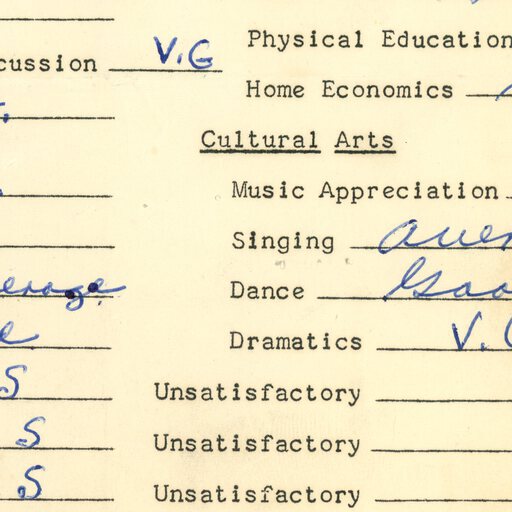 cussion V.G Physical Education
Home Economics
Cultural Arts
Music Appreciation
Singing aver
erage Dance Goo
e Dramatics V.G
S Unsatisfactory
S Unsatisfactory
S Unsatisfactory